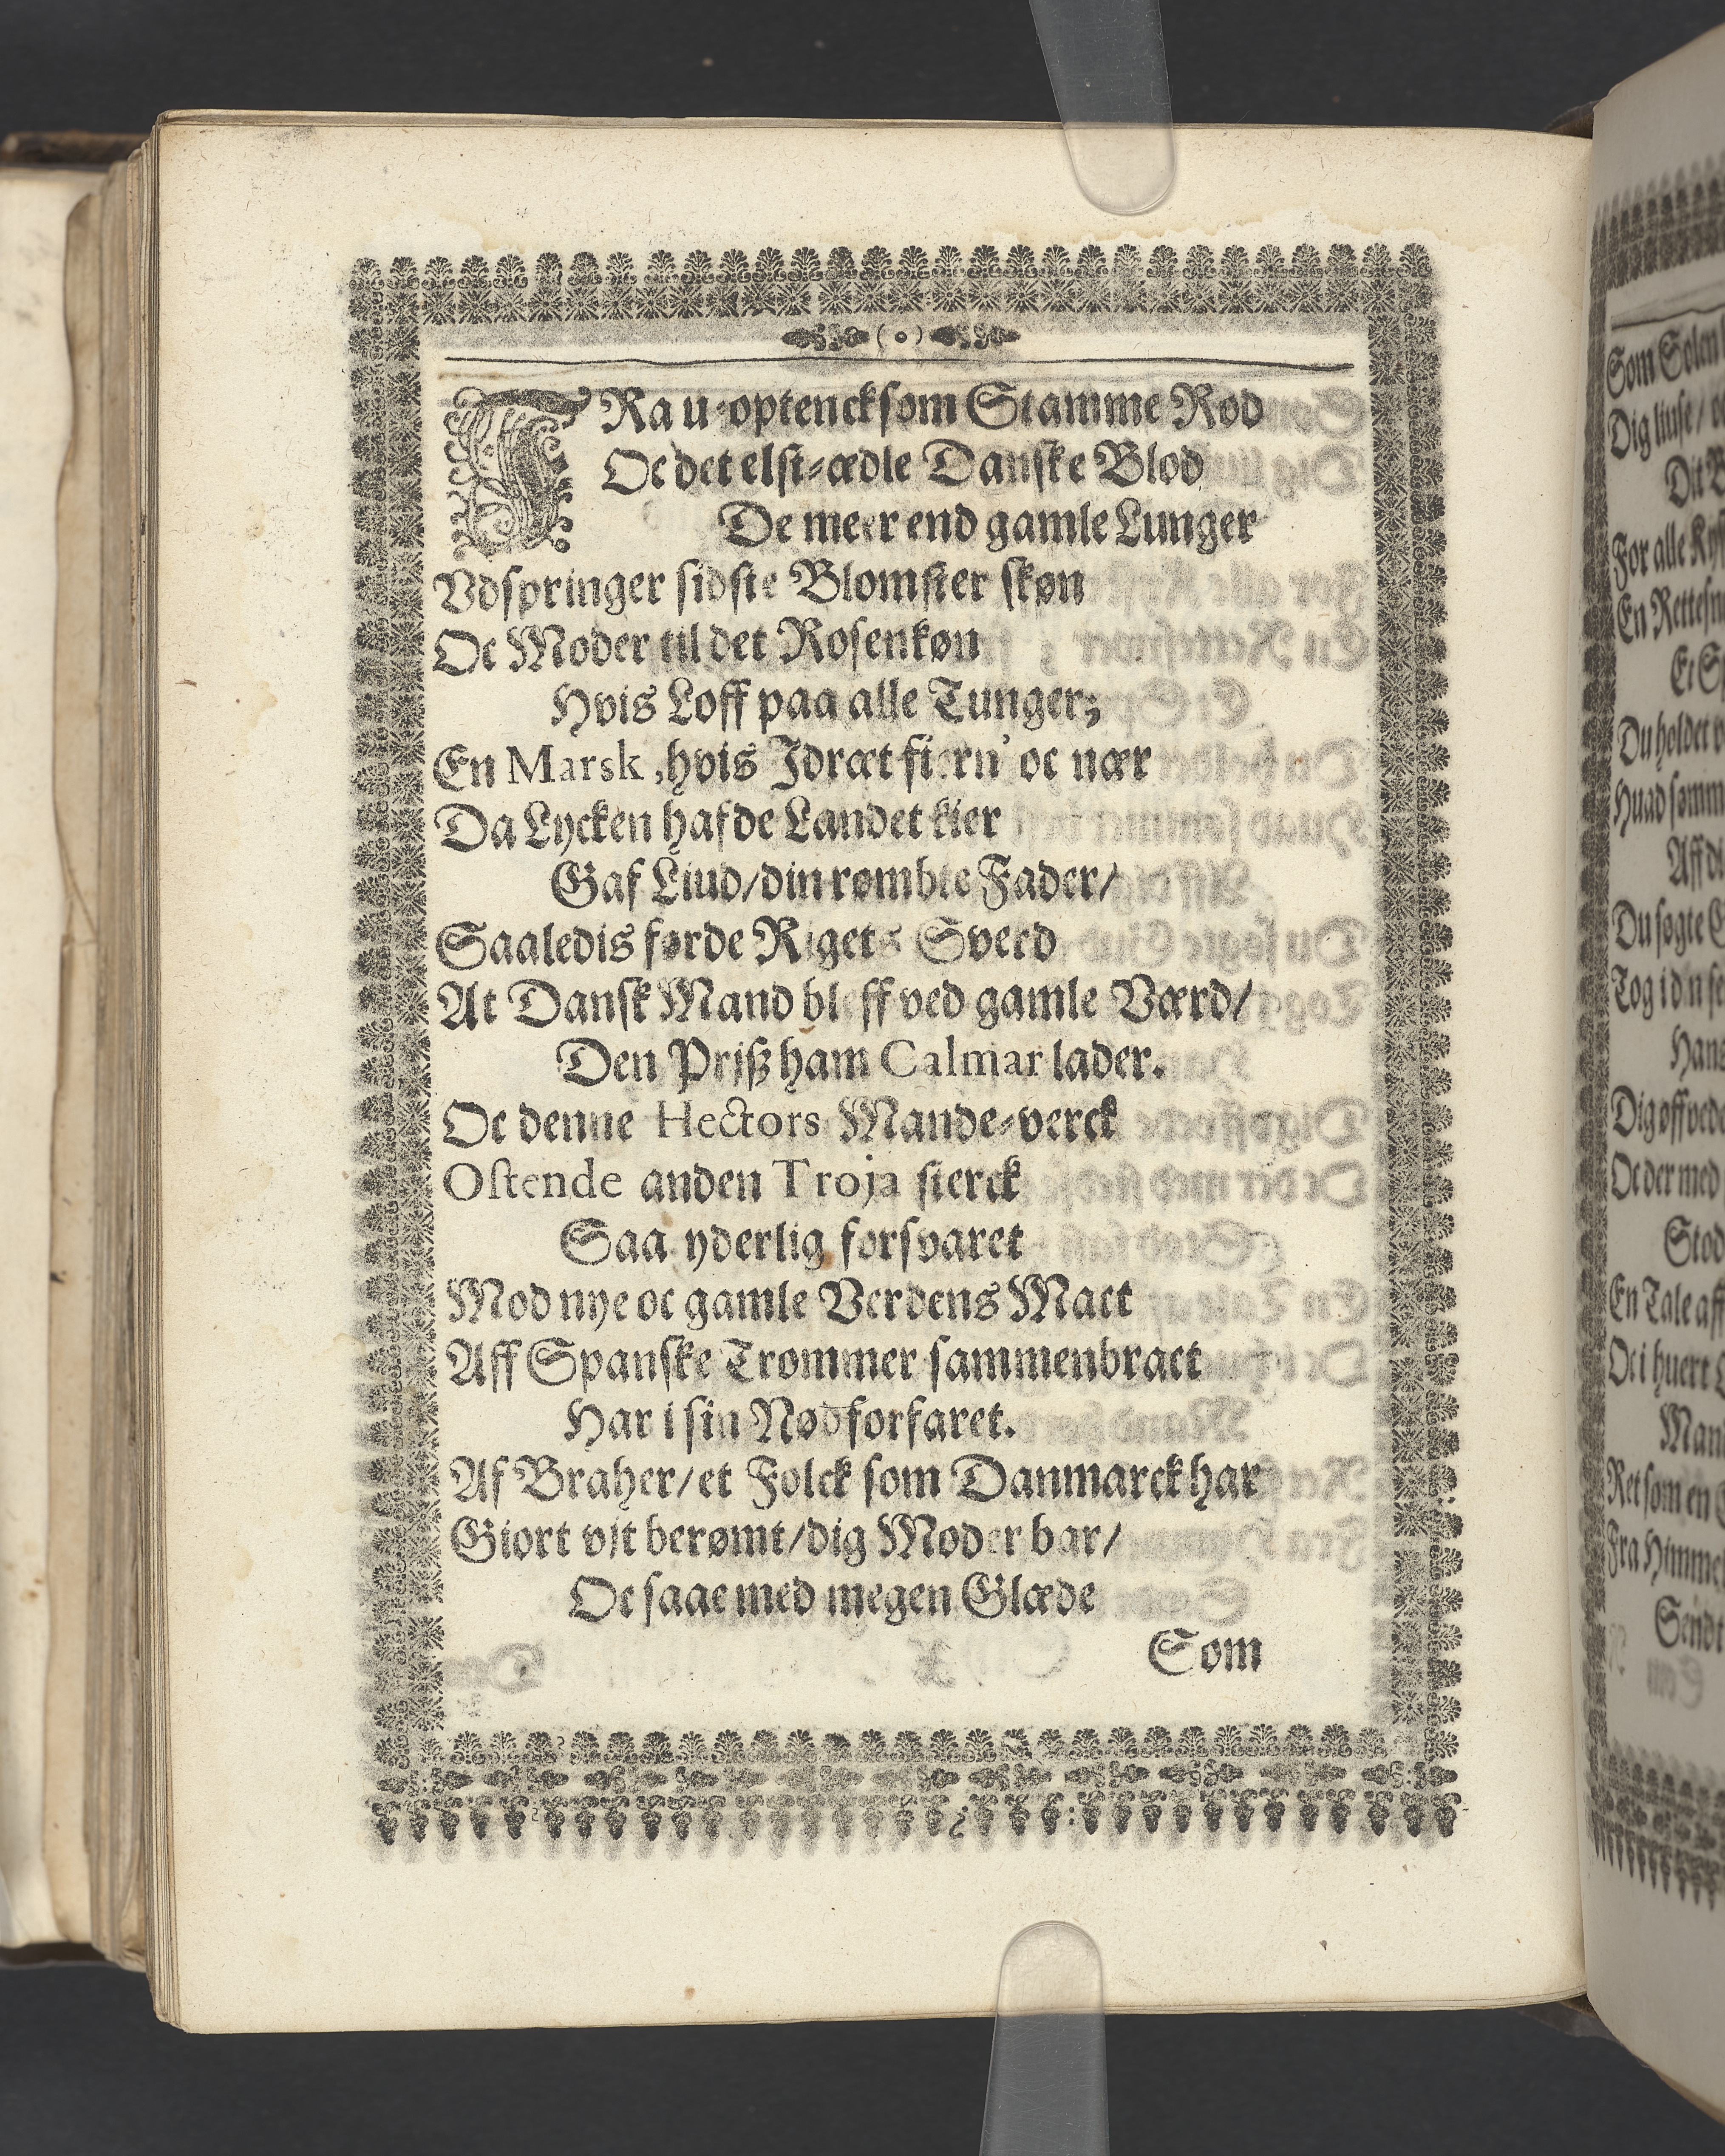 FRa u-optencksom Stamme Rod
Oc det elst-ædle Danske Blod
De meer end gamle Lunger
Vdspringer sidste Blomster skøn
Oc Moder til det Rosenkøn
Hvis Loff paa alle Tunger;
En Marsk, hvis Idræt fiern' oc nær
Da Lycken hafde Landet kier
Gaf Liud/din rømbte Fader/
Saaledis førde Rigets Sverd
At Dansk Mand bleff ved gamle Værd/
Den Prjß ham Calmar lader.
Oc denne Hectors Mande-verck
Ostende anden Troja sterck
Saa yderlig forsvaret
Mod nye oc gamle Verdens Mact
Aff Spanske Trommer sammenbract
Har i sin Nød forfaret.
Af Braher/et Folck som Danmarck har
Giort vjt berømt/dig Moder bar/
Oc saae med megen Glæde
Som
Som Solen
Dig liuse/
Dit
For alle
En
Du holdet
Aff
Du søgte
Tog
Dig
Oc der med
Stod
En Tale aff
Oc i huert
Ret som en
Fra Himme
Sendt